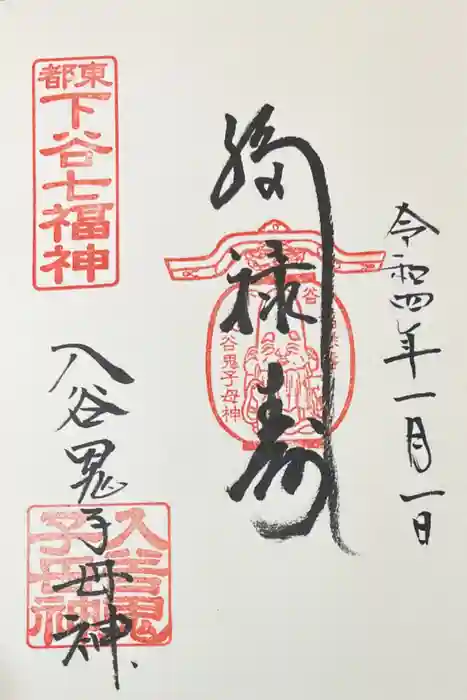 令和四年一月一日
福禄寿
谷鬼子母神
東都
下谷七福神
入谷鬼子母神
入谷鬼
子母神